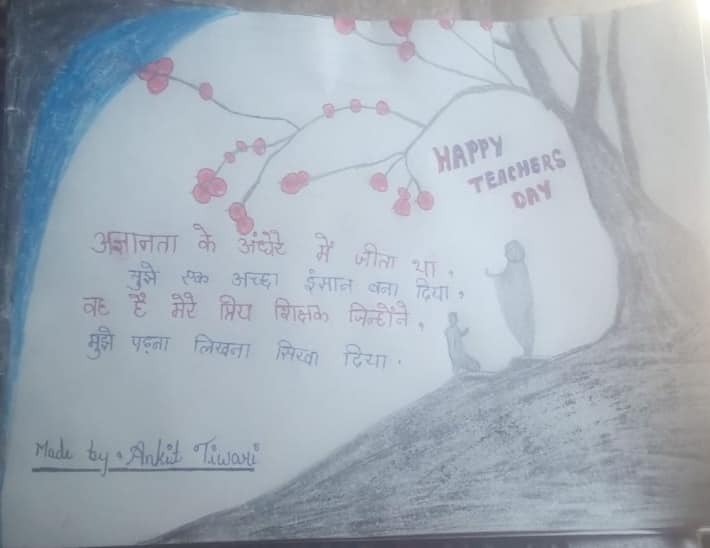 HAPPY
TEACHERS
DAY
अज्ञानता के अंधेरे में जीता था,
मुझे एक अच्छा इंसान बना दिया,
वह है मेरे प्रिय शिक्षक जिन्होंने,
मुझे पढ़ना लिखना सिखा दिया.
Made by. Ankit Tiwari